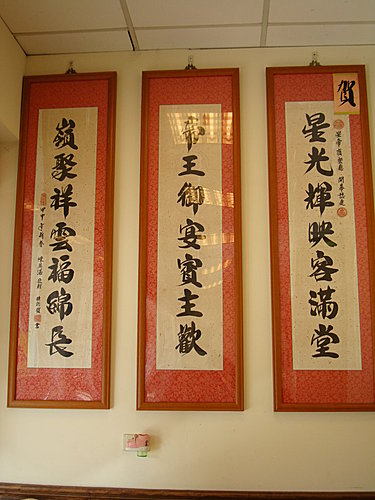 賀
星光輝映客滿堂
帝王御宴賓主歡
嶺聚祥雲福綿長